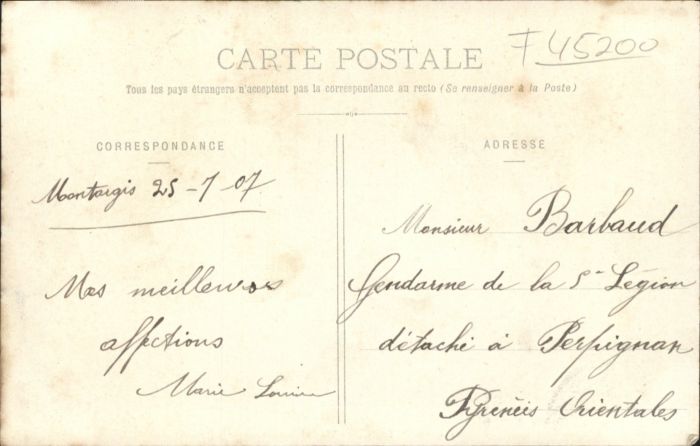 CARTE POSTALE
F 45200
Tous les pays étrangers n'acceptent pas la correspondance au recto (Se renseigner à la Poste)
CORRESPONDANCE
Montargis 25-7-07
Mes meilleures
affections
Marie Louise
ADRESSE
Monsieur Barbaud
Gendarme de la 5e Légion
détaché à Perpignan
Pyrénéés Orientales